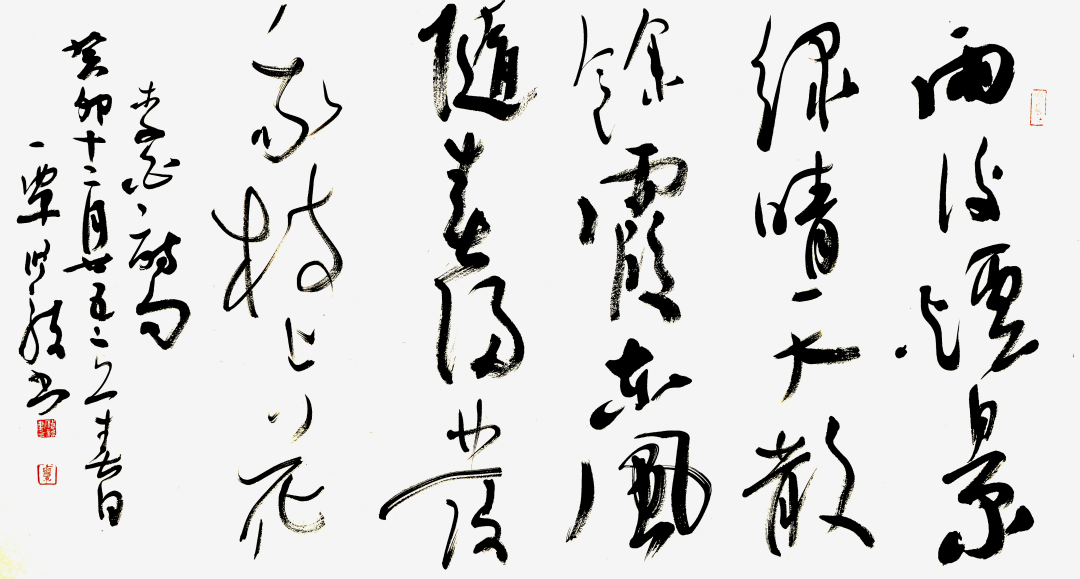 雨後煙景
綠晴天散
餘霞東風
隨春歸發
我枝上花
李白詩句
癸卯十二月廿五立春日
一覃書